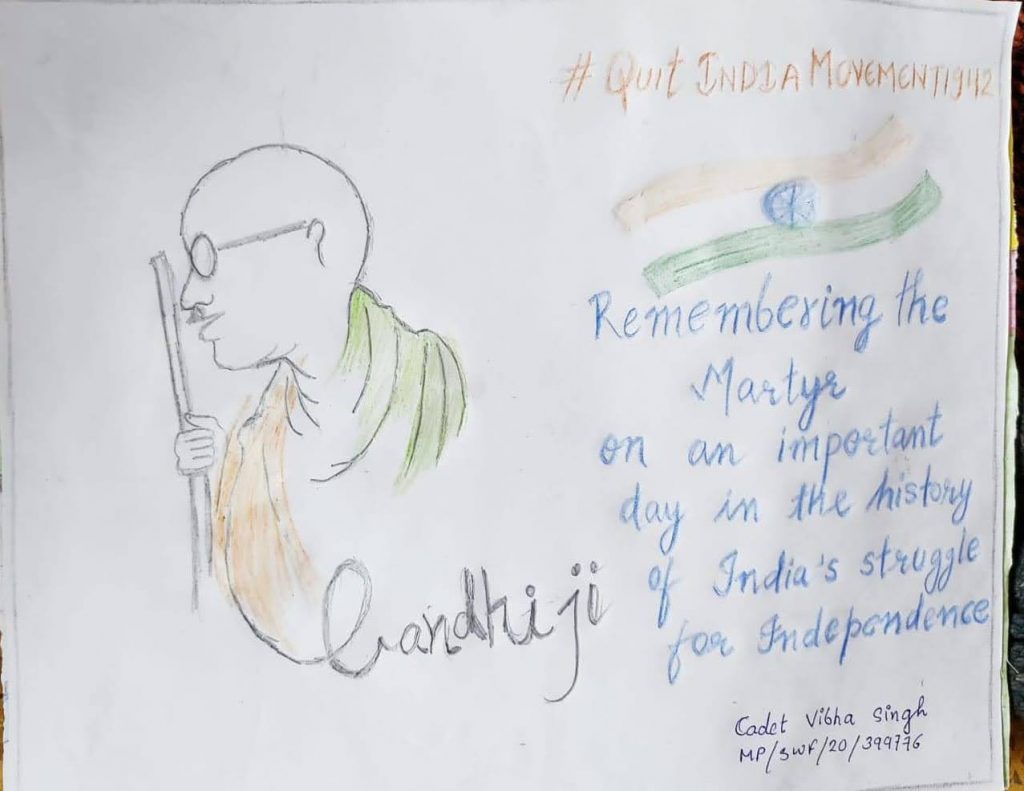 # QUIT INDIA MOVEMENT1942
Remembering the
Martyr
on an important
day in the history
of India's struggle
for Independence
Gandhiji
Cadet Vibha Singh
MP/SWF/20/399776